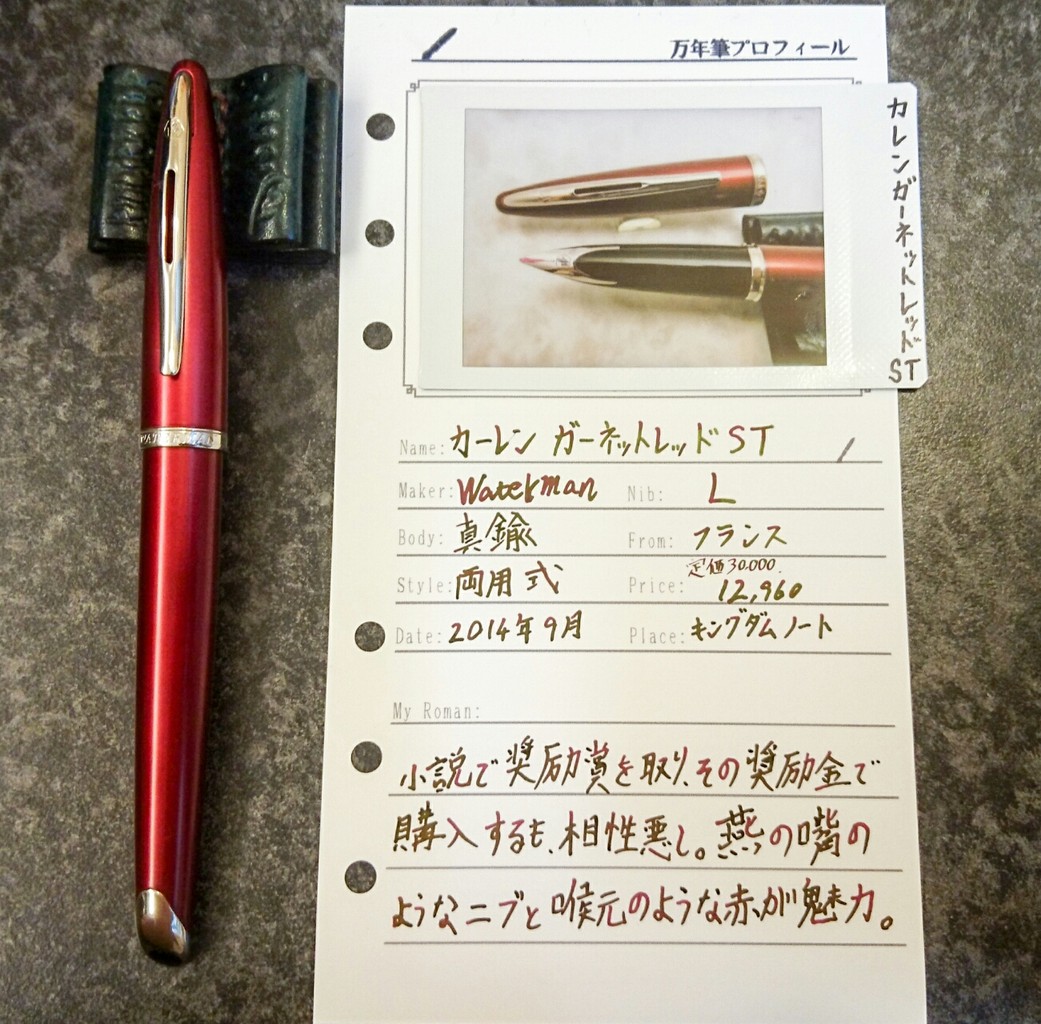 万年筆プロフィール
カレンガーネットレッドST
Name: カーレン ガーネットレッドST
Maker: Waterman Nib: L
Body: 真鍮 From: フランス
定価30,000.
Style: 両用式 Price: 12,960
Date: 2014年9月 Place: キングダムノート
My Roman:
小説で奨励賞を取り、その奨励金で
購入するも、相性悪し。燕の嘴の
ようなニブと喉元のような赤が魅力。